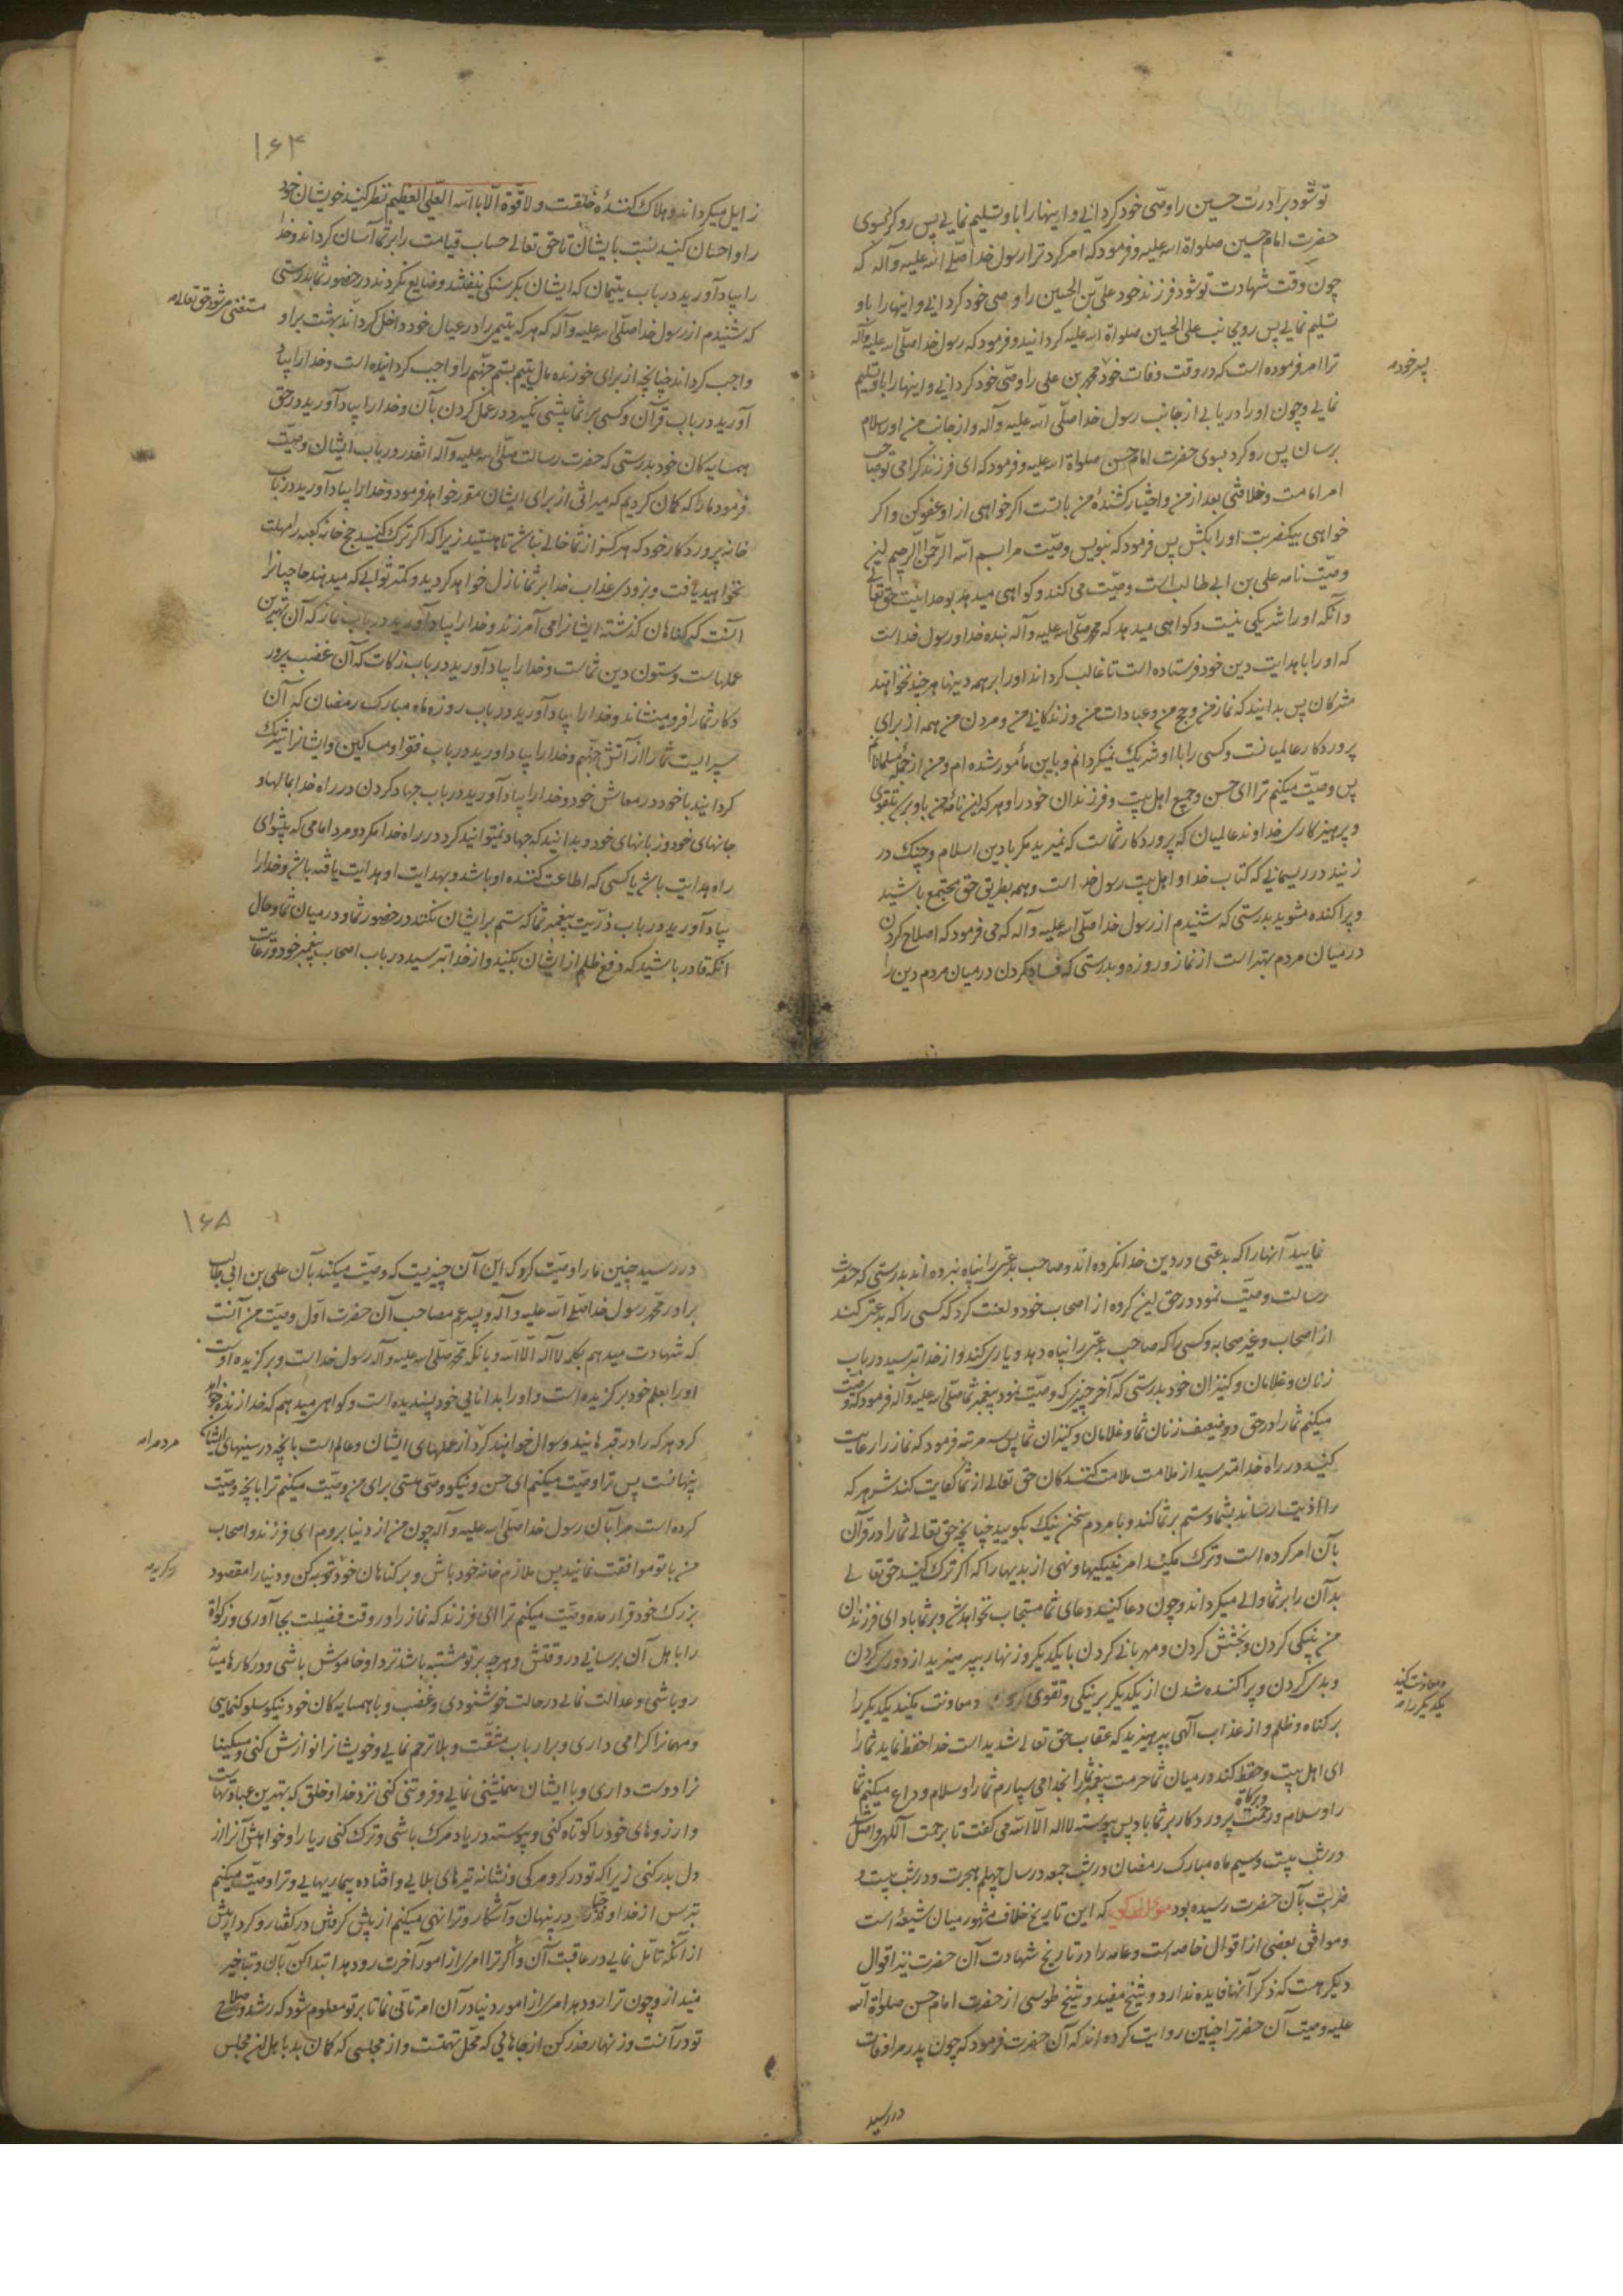 تو شود برادرت حسین را وصی خود گردانی و اینها را باو تسلیم نمایی پس رو کرد بسوی
حضرت امام حسین صلواة الله علیه و فرمود که امر کرد ترا رسول خدا صلّی الله علیه وآله که
چون وقت شهادت تو شود فرزند خود علی بن الحسین را وصی خود گردانی و اینها را باو
تسلیم نمایی پس روی بعلی الحسین صلواة الله علیه گردانید و فرمود که رسول خدا صلّی الله علیه وآله
ترا امر فرموده است که در وقت وفات خود محمد بن علی را وصّی خود گردانی و اینها را باو تسلیم
پسر خود
نمایی و چون او را دریابی از جانب رسول خدا صلّی الله علیه وآله و از جانب من او را سلام
برسان پس رو کرد بسوی حضرت امام حسن صلواة الله علیه و فرمود که ای فرزند گرامی تو صاحب
امر امامت و خلافتی بعد از من و اختیار کشندۀ من با تست اگر خواهی از او عفو کن و اگر
خواهی بیکضربت او را بکش پس فرمود که بنویس وصیّت مرا بسم الله الرّحمن الرّحیم این
وصیّت نامه علی بن ابی طالب است وصیّت می کند و گواهی میدهد بوحدانیّت حق تعالی
و آنکه او را شریکی نیست و گواهی میدهد که محمّد صلّی الله علیه وآله بنده خدا و رسول خداست
که او را با هدایت دین خود فرستاده است تا غالب گرداند او را بر همه دینها هر چند نخواهند
مشرکان پس بدانید که نماز من و حج من و عبادات من و زندگانی من و مردن من همه از برای
پروردگار عالمیانست و کسی را با او شریک نمیگردانم و باین مأمور شده ام و من از جملۀ مسلمانانم
پس وصیّت میکنم ترا ای حسن و جمیع اهل بیت و فرزندان خود را و هر که این نامۀ من باو برسد بتقوی
و پرهیزکاری خداوند عالمیان که پروردگار شماست که نمیرید مگر با دین اسلام و چنگ در
زنید در ریسمانی که کتاب خدا و اهل بیت رسول خداست و همه بطریق حق مجتمع باشید
و پراکنده مشوید بدرستی که شنیدم از رسول خدا صلّی الله علیه وآله که می فرمود که اصلاح کردن
در میان مردم بهتر است از نماز و روزه و بدرستی که فساد کردن در میان مردم دین را
۱۶۴
زایل میگرداند و هلاک کنندۀ خلقست و لا قوّة الّا بالله العلّی العظیم نظر کنید خویشان خود
را و احسان کنید نسبت بایشان تا حق تعالی حساب قیامت را بر شما آسان گرداند و خدا
را بیاد آورید در باب یتیمان که ایشان بگرسنگی نیفتند و ضایع نگردند در حضور شما بدرستی
که شنیدم از رسول خدا صلّی الله علیه وآله که هر که یتیمی را در عیال خود داخل گرداند بهشت بر او
مستغنی شود حق تعالی
واجب گرداند چنانچه از برای خورنده مال یتیم بستم جهنّم را واجب گردانیده است و خدا را بیاد
آورید در باب قرآن و کسی بر شما پیشی نگیرد در عمل کردن بآن و خدا را بیاد آورید در حق
همسایه کان خود بدرستی که حضرت رسالت صلّی الله علیه وآله آنقدر در باب ایشان وصیّت
فرمود ما را که گمان کردیم که میراثی از برای ایشان مقرر خواهد فرمود و خدا را بیاد آورید در باب
خانه پروردگار خود که هرگز از شما خالی نباشد تا هستید زیرا که اگر ترک کنید حج خانه کعبه را مهلت
نخواهید یافت و بزودی عذاب خدا بر شما نازل خواهد گردید و کمتر ثوابی که میدهند حاجیان را
آنست که گناهان گذشته ایشان را می آمرزند و خدا را بیاد آورید در باب نماز که آن بهترین
عملهاست و ستون دین شماست و خدا را بیاد آورید در باب زکات که آن غضب پرور
دگار شما را فرو مینشاند و خدا را بیاد آورید در باب روزه ماه مبارک رمضان که آن
سپریست شما را از آتش جهنّم و خدا را بیاد آورید در باب فقرا و مساکین و ایشان را شریک
گردانید با خود در معاش خود و خدا را بیاد آورید در باب جهاد کردن در راه خدا بمالها و
جانهای خود و زبانهای خود و بدانید که جهاد نمیتوانند کرد در راه خدا مگر دو مرد امامی که پیشوای
راه هدایت باشد یا کسی که اطاعت کننده او باشد و بهدایت او هدایت یافته باشد و خدا را
بیاد آورید در باب ذرّیت پیغمبر شما که ستم بر ایشان نکنند در حضور شما و در میان شما و حال
آنکه قادر باشید که دفع ظلم از ایشان بکنید و از خدا بترسید در باب اصحاب پیغمبر خود و رعایت
نمایید آنها را که بدعتی در دین خدا نکرده اند و صاحب بدعتی را پناه نبرده اند بدرستی که حضرت
رسالت وصیّت نمود در حق این گروه از اصحاب خود و لعنت کرد کسی را که بدعتی کند
از اصحاب و غیر صحابه و کسی را که صاحب بدعتی را پناه دهد و یاری کند و از خدا بترسید در باب
زنان و غلامان و کنیزان خود بدرستی که آخر چیزی که وصیّت نمود پیغمبر شما صلّی الله علیه وآله فرمود که وصیّت
میکنم شما را در حق دو ضعیف زنان شما و غلامان و کنیزان شما پس سه مرتبه فرمود که نماز را رعایت
کنید در راه خدا مترسید از ملامت ملامت کنندگان حق تعالی از شما کفایت کند شر هر که
را اذیت رساند بشما و ستم بر شما کند و با مردم سخن نیک بگویید چنانچه حق تعالی شما را در قرآن
بآن امر کرده است و ترک مکنید امر بنیکیها و نهی از بدیها را که اگر ترک کنید حق تعالی
بدان را بر شما والی میگرداند و چون دعا کنید دعای شما مستجاب نخواهد شد و بر شما باد ای فرزندان
من نیکی کردن و بخشش کردن و مهربانی کردن با یکدیگر و زنهار بپرهیزید از دوری کردن
و بدی کردن و پراکنده شدن از یکدیگر بر نیکی و تقوی و معاونت مکنید یکدیگر را
و معاونت کنید
یکدیگر را
بر گناه و ظلم و از عذاب الهی بپرهیزید که عقاب حق تعالی شدید است خدا حفظ نماید شما را
ای اهل بیت و حفظ کند در میان شما حرمت پیغمبر شما را بخدا می سپارم شما را و سلام وداع میکنم شما
را و سلام و رحمت و برکات پروردگار بر شما باد پس پیوسته لا اله الّا الله می گفت تا برحمت الهی واصل شد
در شب بیست و سیم ماه مبارک رمضان در شب جمعه در سال چهلم هجرت و در شب بیست و
ضربت بآن حضرت رسیده بود مؤلف گوید که این تاریخ خلاف مشهور میان شیعه است
و موافق بعضی از اقوال خاصه است و عامه را در تاریخ شهادت آن حضرت نیز اقوال
دیگر هست که ذکر آنها فایده ندارد و شیخ مفید و شیخ طوسی از حضرت امام حسن صلواة الله
علیه وصیت آن حضرت را چنین روایت کرده اند که آن حضرت فرمود که چون پدر مرا وفات
در رسید
۱۶۵
در رسید چنین ما را وصیّت کرد که این آن چیزیست که وصیّت میکند بآن علی بن ابی طالب
برادر محمّد رسول خدا صلّی الله علیه وآله و پسر عم مصاحب آن حضرت اوّل وصیّت من آنست
که شهادت میدهم بکلمه لا اله الّا الله و بآنکه محمّد صلّی الله علیه وآله رسول خداست و برگزیده اوست
او را بعلم خود برگزیده است و او را بدانایی خود پسندیده است و گواهی میدهم که خدا زنده خواهد
کرد هر که را در قبرهایند و سوال خواهند کرد از عملهای ایشان و عالم است بآنچه در سینهای ایشان
مردم را
پنهانست پس ترا وصیّت میکنم ای حسن و نیکو وصی هستی برای من وصیّت میکنم ترا بآنچه وصیّت
کرده است مرا بآن رسول خدا صلّی الله علیه وآله چون من از دنیا بروم ای فرزند و اصحاب
من با تو موافقت نمایند پس ملازم خانه خود باش و بر گناهان خود توبه کن و دنیا را مقصود
و گریه
بزرک خود قرار مده وصیّت میکنم ترا ای فرزند که نماز را در وقت فضیلت بجا آوری و زکوة
را باهل آن برسانی در وقتش و هر چه بر تو مشتبه باشد نزد او خاموش باشی و در کارها میانه
رو باشی و عدالت نمایی در حالت خوشنودی و غضب و با همسایه کان خود نیکو سلوک نمایی
و مهمانرا گرامی داری و بر ارباب مشقّت و بلا ترحم نمایی و خویشانرا نوازش کنی و مسکینا
نرا دوست داری و با ایشان همنشینی نمایی و فروتنی کنی نزد خدا و خلق که بهترین عبادتهاست
و آرزوهای خود را کوتاه کنی و پیوسته در یاد مرک باشی و ترک کنی ریا را و خواهش آنرا از
دل بدر کنی زیرا که تو در گرو مرگی و نشانه تیرهای بلایی و افتاده بیماریهایی و ترا وصیّت میکنم
بترس از خداوند خود در پنهان و آشکار و ترا نهی میکنم از پیش گرفتن در گفتار و کردار پیش
از آنکه تأمّل نمایی در عاقبت آن و اگر ترا امری از امور آخرت رو دهد ابتدا کن بآن و بتأخیر
مینداز و چون ترا رو دهد امری از امور دنیا در آن امر تأنّی نما تا بر تو معلوم شود که رشد و صلاح
تو در آنست و زنهار حذر کن از جاهایی که محلّ تهمتست و از مجلسی که گمان بد باهل این مجلس